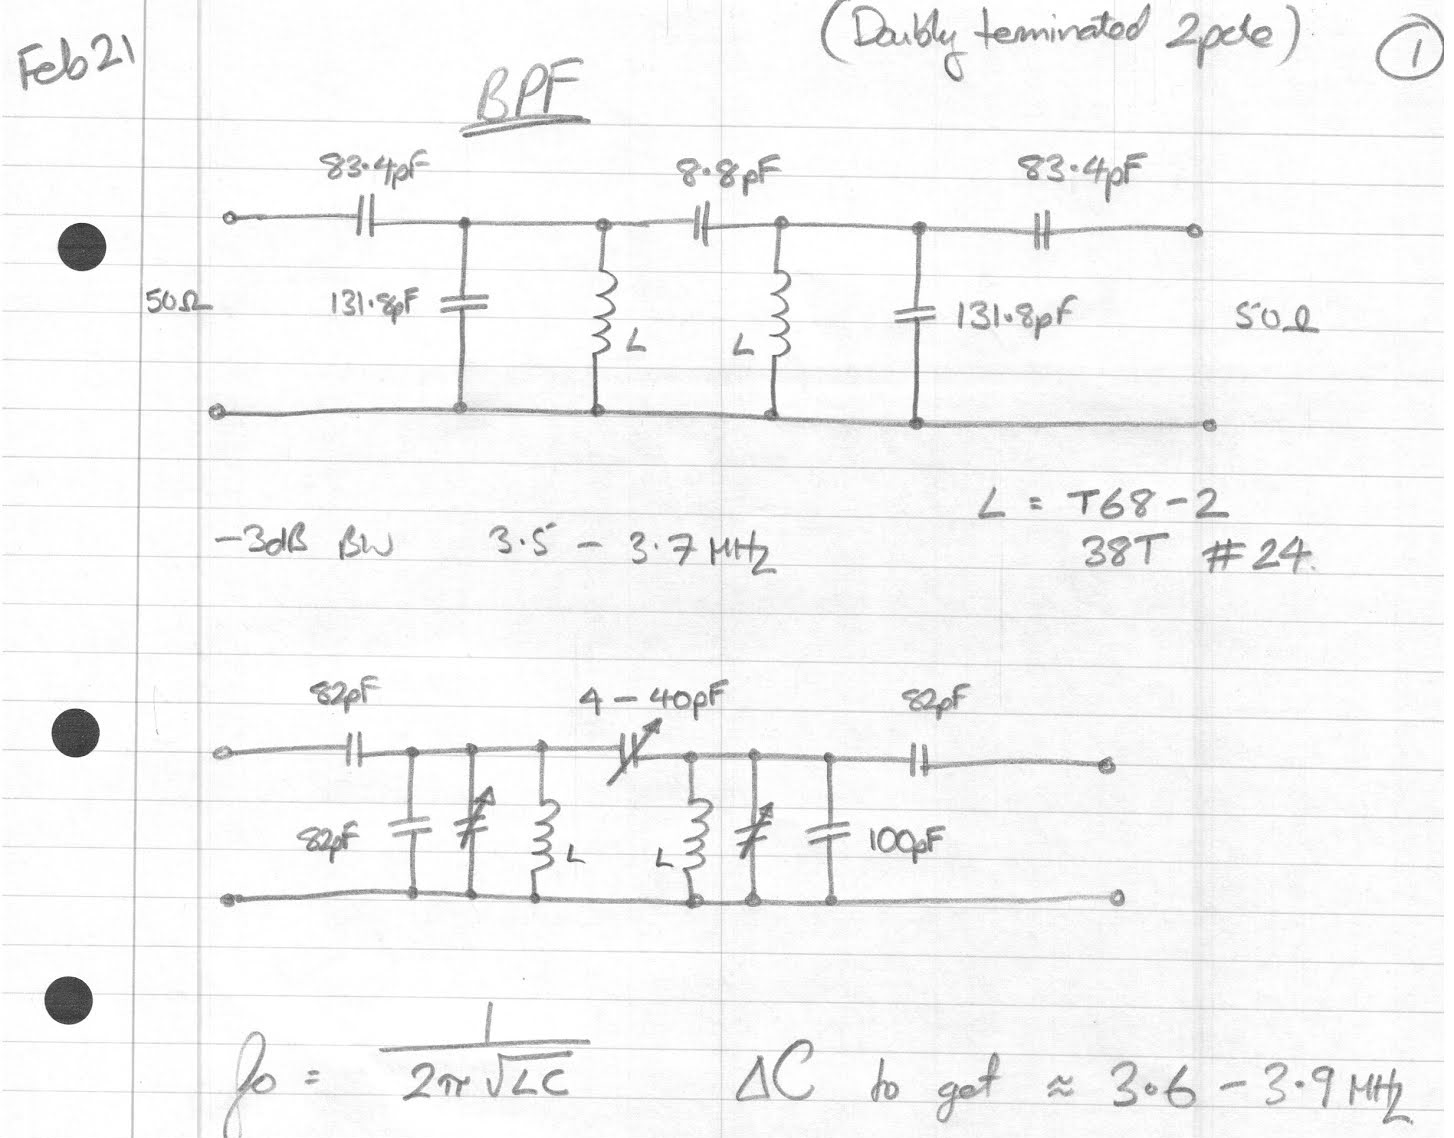 Feb 21
(Doubly terminated 2pole)
1
BPF
83.4pF 8.8pF 83.4pF
50Ω 131.8pF L L 131.8pF 50Ω
L = T68-2
-3dB BW 3.5 - 3.7 MHz 38T #24.
82pF 4-40pF 82pF
82pF L L 100pF
fo = 1 / 2π√LC ΔC to get ≈ 3.6 - 3.9 MHz